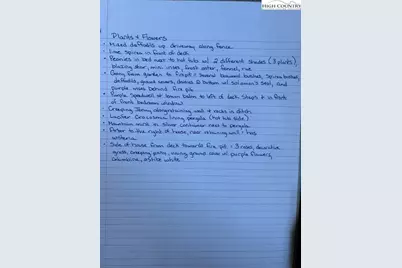 HIGH COUNTRY
Plants & Flowers
• Mixed daffodils up driveway along fence
• Lime spirea in front of deck
• Peonies in bed next to hot tub w/ 2 different shades (3 plants),
blazing star, mini irises, fresh aster, fennel, rue
• Going from garden to firepit: several boxwood bushes, spirea bushes,
daffodils, giant alliums, down @ bottom w/ solomon's seal, and
purple irises behind fire pit
• Purple Speedwell & lemon balm to left of deck steps & in front
of front bedroom window
• Creeping Jenny along retaining wall & rocks in ditch
• Lucifer Crocosmia lining pergola (hot tub side)
• Mountain mint in silver container next to pergola
• Aster to the right of house, near retaining wall; has
wisteria
• Side of house from deck towards fire pit: 3 roses, decorative
grass, creeping phlox, viney ground cover w/ purple flowers,
columbine, astilbe white